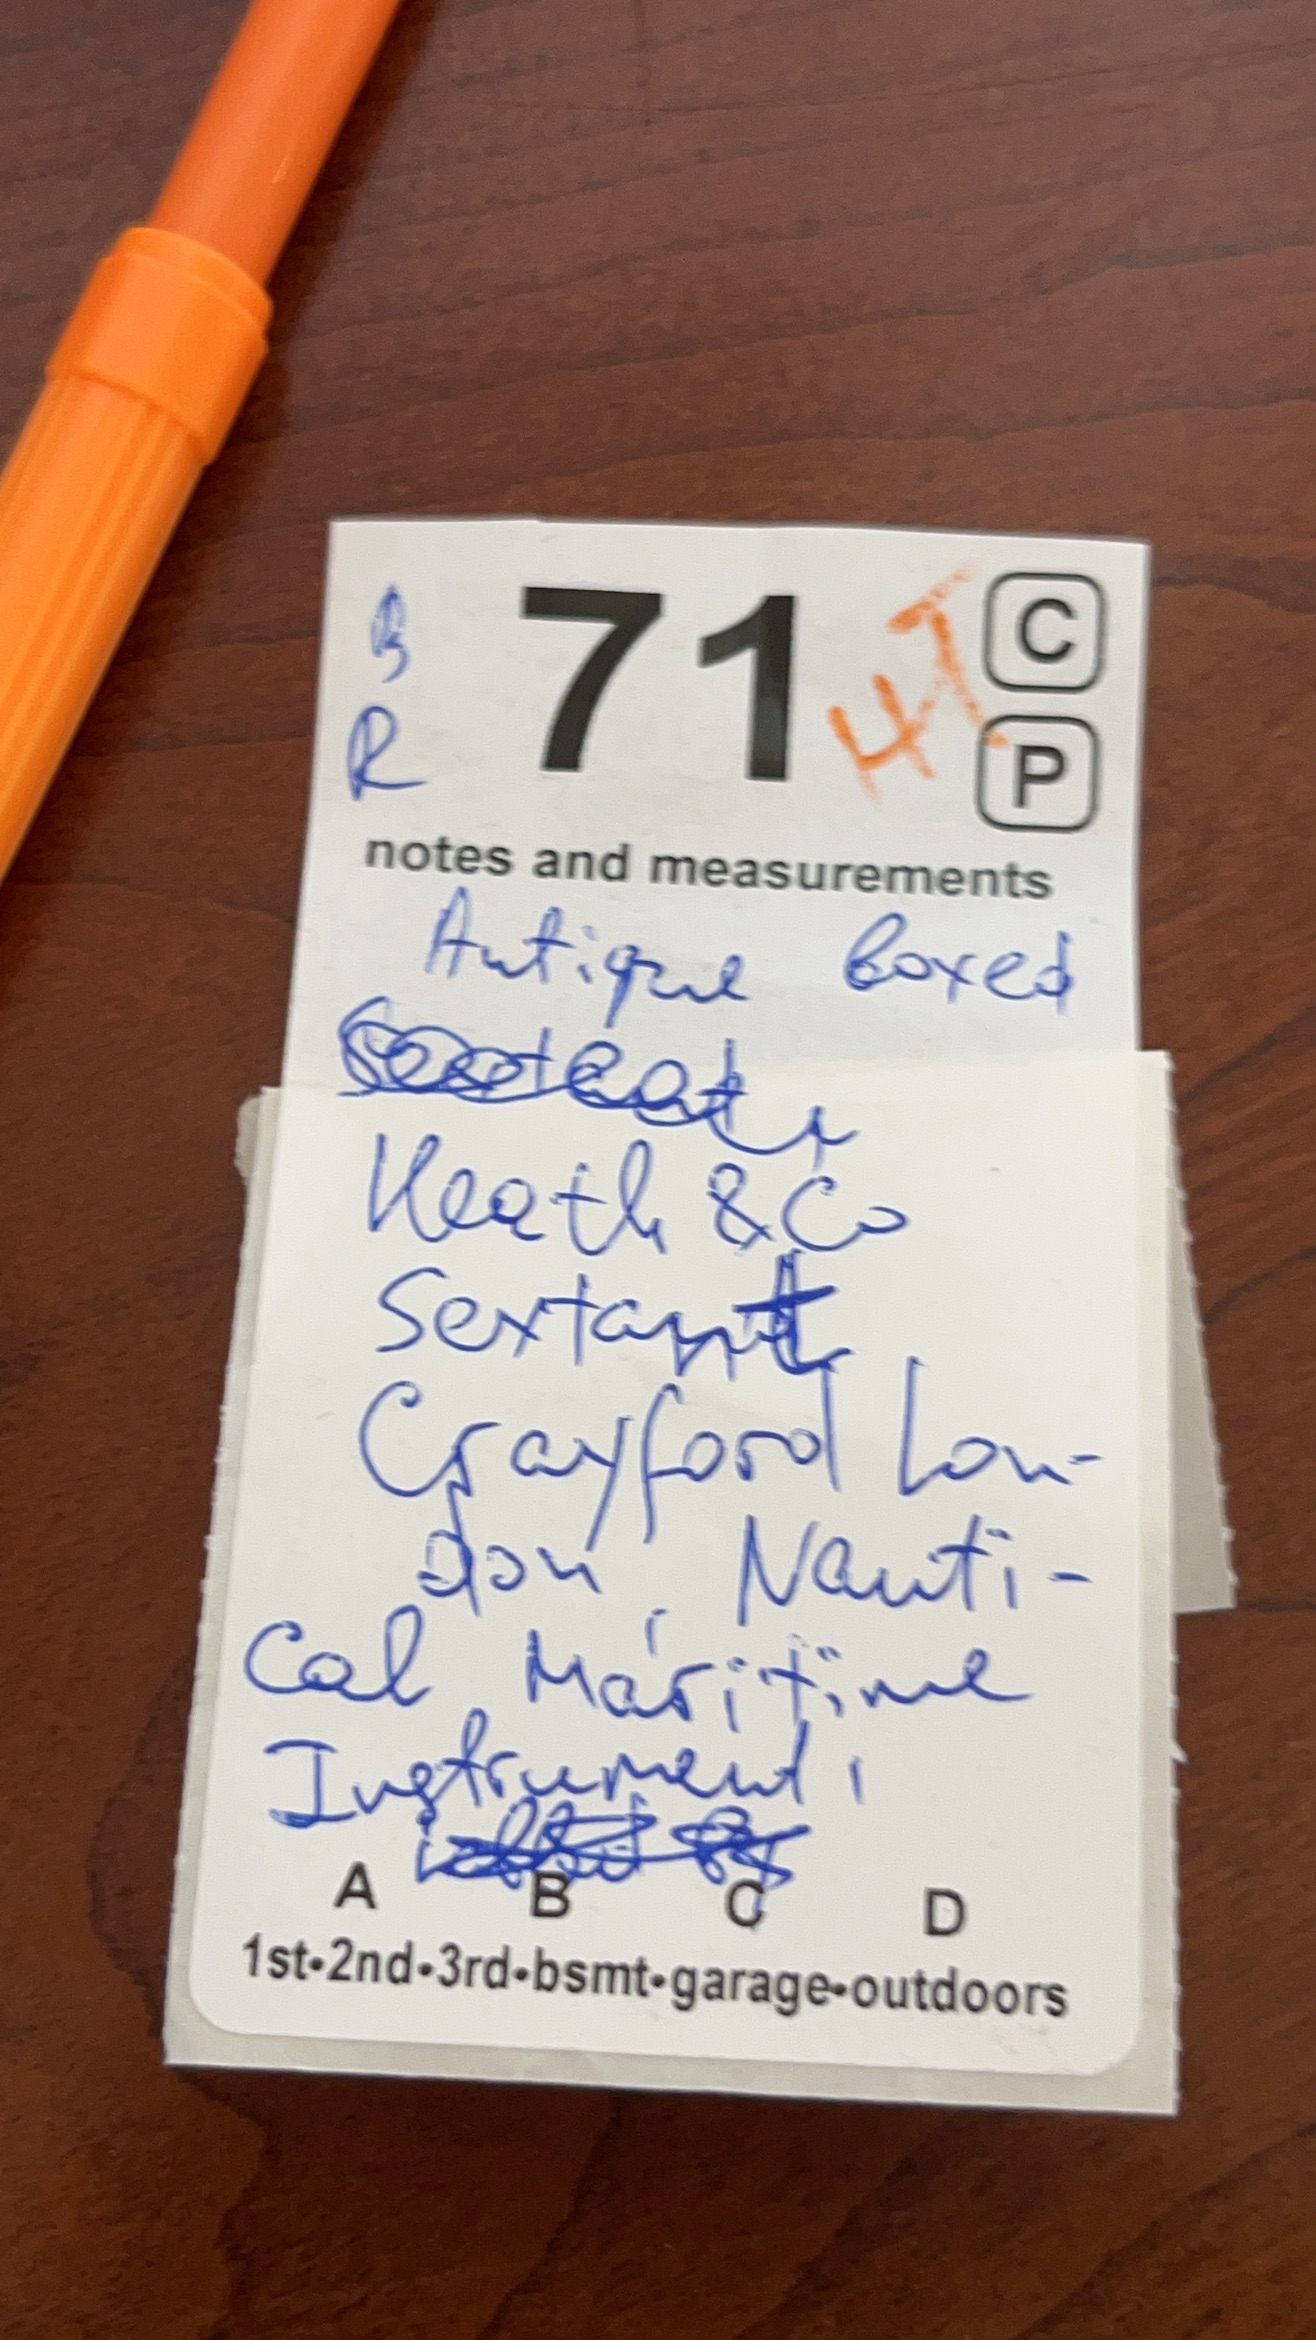 B
R
71
HT
C
P
notes and measurements
Antique boxed
Heath & Co
Sextant
Crayford Lon-
don, Nauti-
cal Maritime
Instrument,
A B C D
1st•2nd•3rd•bsmt•garage•outdoors